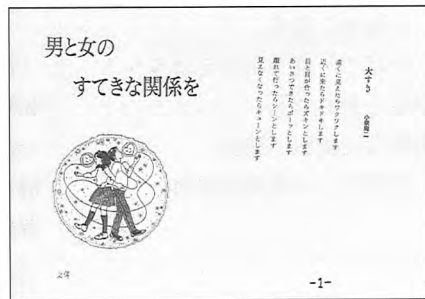 男と女の
すてきな関係を
大すき
小泉周二
遠くに見えたらワクワクします
近くに来たらドキドキします
目と目が合ったらズキンとします
あいさつできたらポーッとします
離れて行ったらシーンとします
見えなくなったらキューンとします
-1-